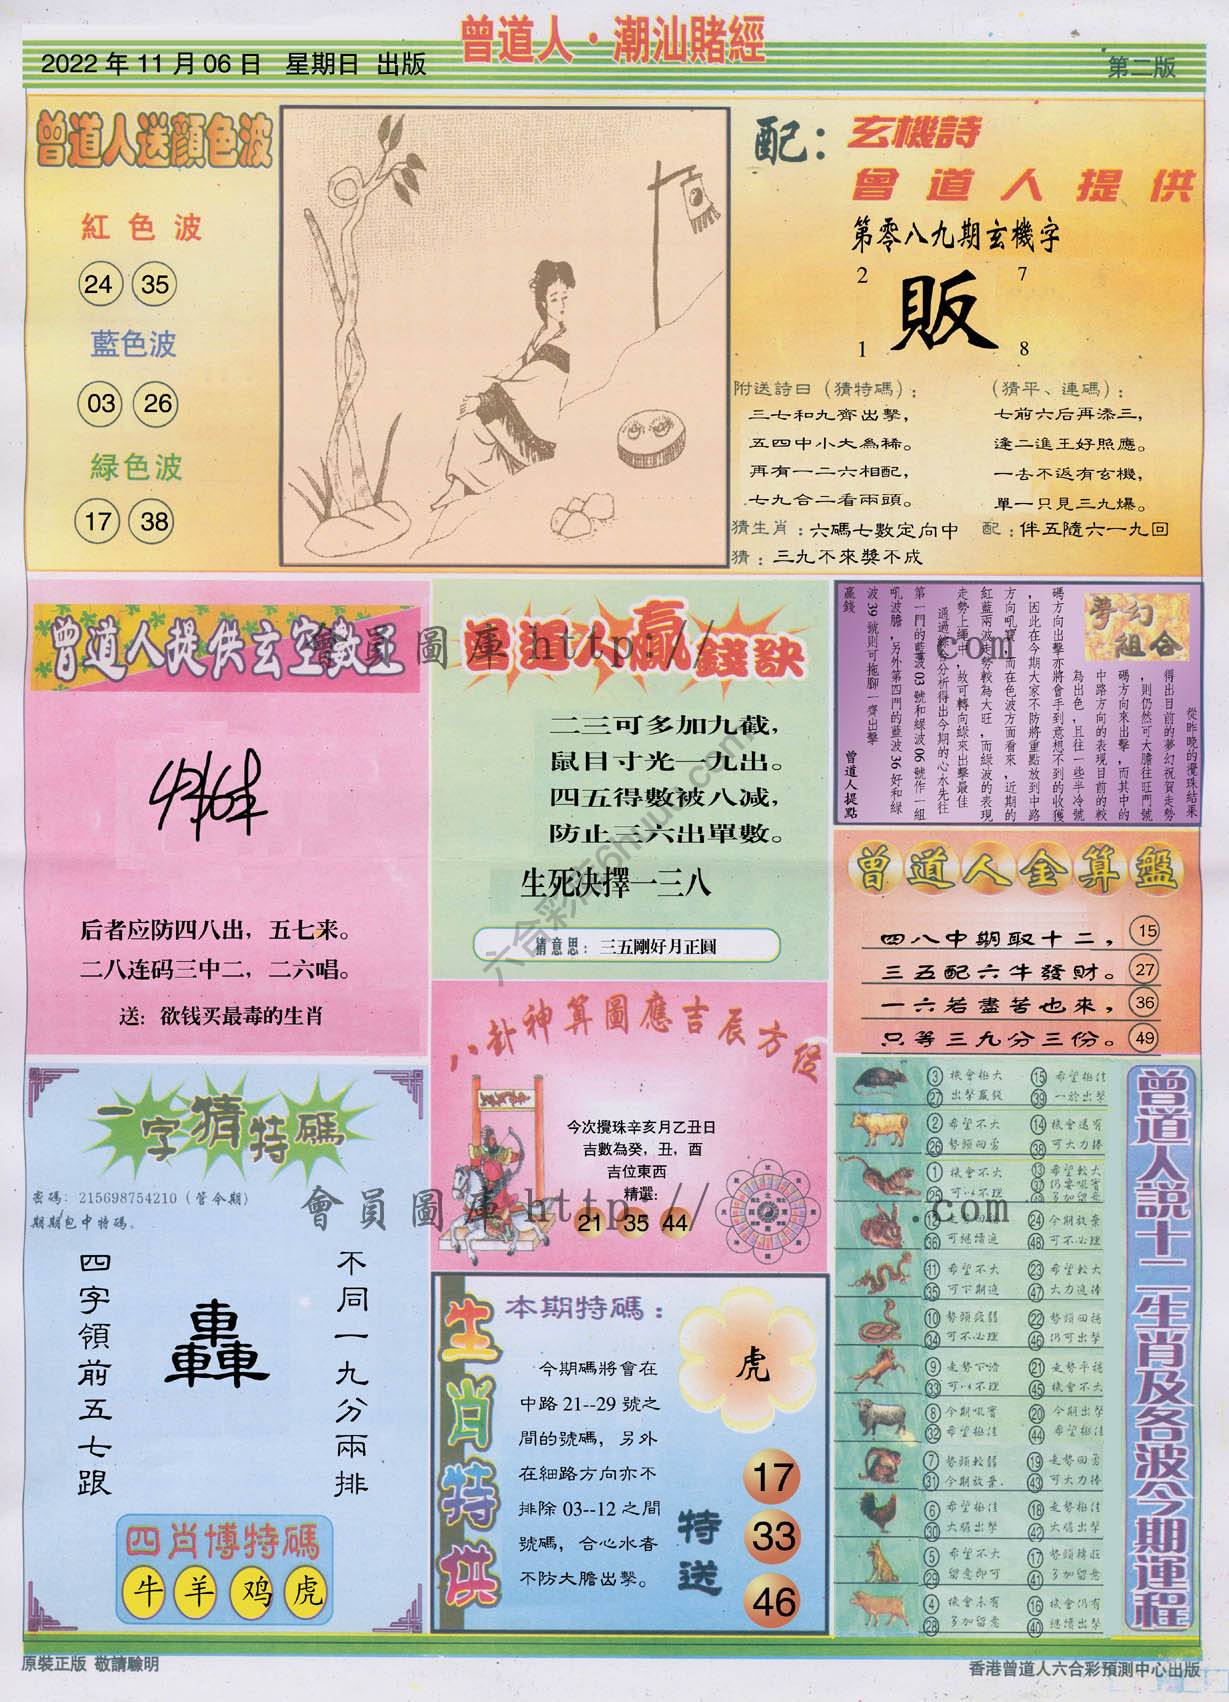 曾道人·潮汕賭經
2022 年 11 月 06 日 星期日 出版
第二版
曾道人送顏色波
紅色波
24 35
藍色波
03 26
緑色波
17 38
配：玄機詩
曾道人提供
第零八九期玄機字
2 7
販
1 8
附送詩曰（猜特碼）：
三七和九齊出擊，
五四中小大為稀。
再有一二六相配，
七九合二看兩頭。
（猜平、連碼）：
七前六后再添三，
逢二進王好照應。
一去不返有玄機，
單一只見三九爆。
猜生肖：六碼七數定向中
配：伴五隨六一九回
猜：三九不來獎不成
曾道人提供玄空數王
后者应防四八出，五七来。
二八连码三中二，二六唱。
送：欲钱买最毒的生肖
曾道人贏錢訣
二三可多加九截，
鼠目寸光一九出。
四五得數被八减，
防止三六出單數。
生死决擇一三八
猜意思：三五剛好月正圓
夢幻
組合
從昨晚的攪珠結果
得出目前的夢幻祝賀走勢
，則仍然可大膽往旺門號
碼方向來出擊，而其中的
中路方向的表現目前的較
為出色，且往一些半冷號
碼方向出擊亦將會手到意想不到的收獲
，因此在今期大家不防將重點放到中路
方向吼寶，而在色波方面看來，近期的
紅藍兩波走勢較為大旺，而綠波的表現
走勢上繩中，故可轉向綠來出擊最佳
通過綜合分析得出今期的心水先往
第一門的藍波 03 號和綠波 06 號作一組
吼波膽，另外第四門的藍波 36 好和綠
波 39 號則可拖腳一齊出擊
贏錢
曾道人提點
曾道人金算盤
四八中期取十二， 15
三五配六牛發財。 27
一六若盡苦也來， 36
只等三九分三份。 49
八卦神算圖應吉辰方位
今次攪珠辛亥月乙丑日
吉數為癸，丑，酉
吉位東西
精選：
21 35 44
一字猜特碼
密碼：215698754210（管今期）
期期包中特碼。
四字領前五七跟
轟
不同一九分兩排
四肖博特碼
牛 羊 鸡 虎
生肖特供
本期特碼：
今期碼將會在
中路 21--29 號之
間的號碼，另外
在細路方向亦不
排除 03--12 之間
號碼，合心水者
不防大膽出擊。
虎
特送
17
33
46
曾道人説十二生肖及各波今期運程
3 機會極大 15 希望極佳
27 出擊贏錢 39 一於出擊
2 希望不大 14 機會還有
26 勢頭回勇 38 可大力捧
1 機會不大 13 希望較大
25 可以不理 37 仍要吸實
49 多加留意
12 走勢回穩 24 今期放棄
36 可繼續追 48 可不必理
11 希望不大 23 希望較大
35 可下期追 47 大力追捧
10 勢頭疲弱 22 勢頭回揚
34 可不必理 46 仍可出擊
9 走勢下滑 21 走勢平穩
33 可以不理 45 機會不大
8 今期吸實 20 今期出擊
32 希望極佳 44 希望極佳
7 勢頭較弱 19 走勢回勇
31 今期放棄. 43 可大力捧
6 希望極佳 18 走勢極佳
30 大膽出擊 42 大膽出擊
5 希望不大 17 勢頭轉旺
29 留意即可 41 多加留意
4 機會未有 16 機會仍有
28 多加留意 40 繼續出擊
會員圖庫 http:// .com
會員圖庫 http:// .com
原裝正版 敬請驗明
香港曾道人六合彩預測中心出版